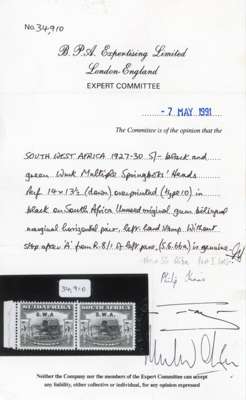 No. 34,910
B.P.A. Expertising Limited
London · England
EXPERT COMMITTEE
-7 MAY 1991
The Committee is of the opinion that the
SOUTH WEST AFRICA 1927-30 5/- black and
green Wmk Multiple Springboks' Heads
Perf 14 x 13½ (down) overprinted (type 10) in
black on South Africa Unused original gum bilingual
marginal horizontal pair. Left hand stamp. Without
stop after 'A' from R.8/1 of left pane, (S.G.66a) is genuine
34,910
S.W.A.
S.W.A.
Neither the Company nor the members of the Expert Committee can accept
any liability, either collective or individual, for any opinion expressed